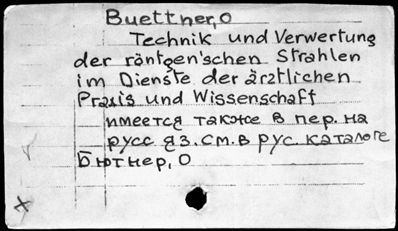 Buettner, O
Technik und Verwertung
der röntgen'schen Strahlen
im Dienste der ärztlichen
Praxis und Wissenschaft
имеется также в пер. на
русс яз. см. в рус. каталоге
Бютнер, О